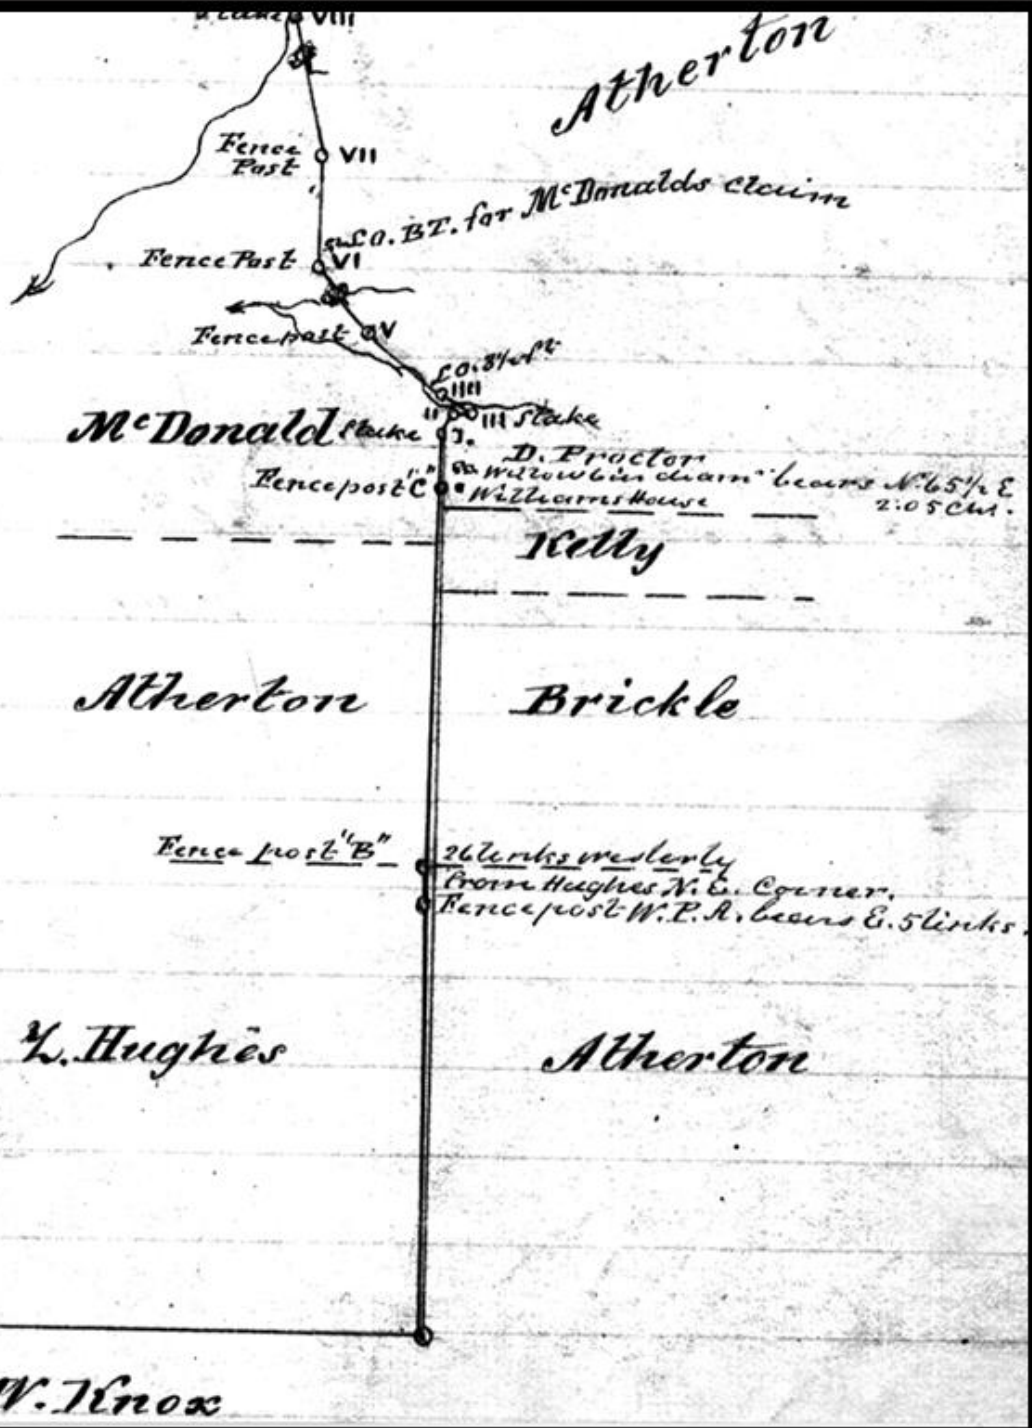 VIII
Atherton
Fence
Post
VII
L.O. B.T. for McDonalds claim
Fence Post
VI
Fence post
V
L.O. 3½ ft
IIII
II
III Stake
McDonald
Stake
I.
D. Proctor
Fence post "C"
Willow 6 in diam bears N. 65½ E
2.05 Chs.
Williams House
Kelly
Atherton
Brickle
Fence post "B"
26 links westerly
from Hughes N. E. Corner.
Fence post W. P. A. bears E. 5 links.
L. Hughes
Atherton
W. Knox